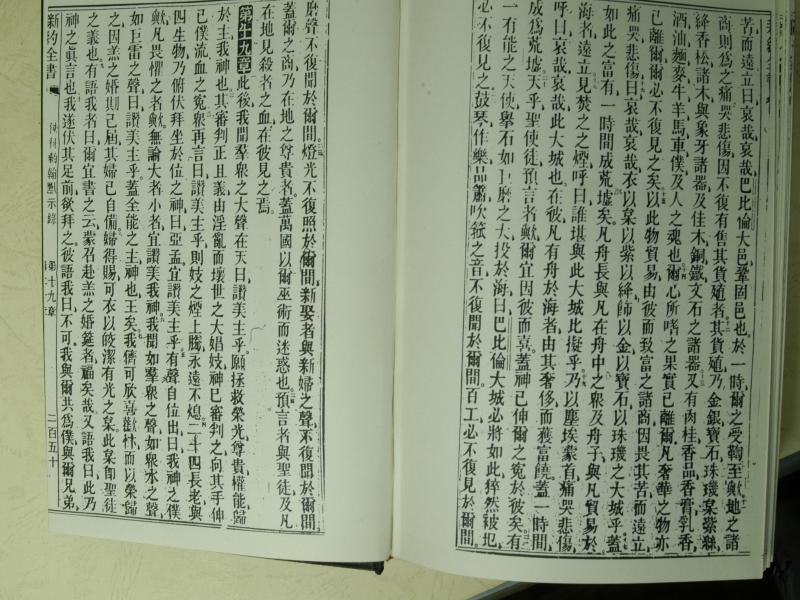 苦而遠立曰哀哉哀哉巴比倫大邑鞏固邑也於一時爾之受鞫至歟地之諸
商則爲之痛哭悲傷因不復有售其貨殖者其貨殖乃金銀寶石珠璣枲紫絲
絳香松諸木與象牙諸器及佳木銅鐵文石之諸器又有肉桂香品香膏乳香
酒油麵麥牛羊馬車僕及人之魂也爾心所嗜之果質已離爾凡奢華之物亦
已離爾爾必不復見之矣以此物貿易由彼而致富之諸商因畏其苦而遠立
痛哭悲傷曰哀哉哀哉衣以枲以紫以絳飾以金以寶石以珠璣之大城乎蓋
如此之富有一時間成荒墟矣凡舟長與凡在舟中之衆及舟子與凡貿易於
海者遠立見焚之之煙呼曰誰堪與此大城此擬乎乃以塵埃蒙首痛哭悲傷
呼曰哀哉哀哉此大城也在彼凡有舟於海者由其奢侈而獲富饒蓋一時間
成爲荒墟天乎聖使徒預言者歟爾宜因彼而喜蓋神已伸爾之冤於彼矣有
一有能之天使舉石如巨磨之大投於海曰巴比倫大城必將如此猝然被圮
必不復見之鼓琴作樂品簫吹篍之音不復聞於爾間百工必不復見於爾間
磨聲不復聞於爾間燈光不復照於爾間新娶者與新婦之聲不復聞於爾間
蓋爾之商乃在地之尊貴者蓋萬國以爾巫術而迷惑也預言者與聖徒及凡
在地見殺者之血在彼見之焉
第十九章 此後我聞羣衆之大聲在天曰讚美主乎願拯救榮光尊貴權能歸
於主我神也其審判正且義由淫亂而壞世之大娼妓神已審判之向其手伸
已僕流血之冤衆再言曰讚美主乎則妓之煙上騰永遠不熄二十四長老與
四生物乃俯伏拜坐於位之神曰亞孟宜讚美主乎有聲自位出曰我神之僕
歟凡畏懼之者歟無論大者小者宜讚美我神我聞如羣衆之聲如衆水之聲
如巨雷之聲曰讚美主乎蓋全能之主神也王矣我儕可欣喜歡忭而以榮歸
之因羔之婚期已屆其婦已自備婦得賜可衣以皎潔有光之枲此枲卽聖徒
之義也有語我者曰爾宜書之云蒙召赴羔之婚筵者福矣哉又語我曰此乃
神之眞言也我遂伏其足前欲拜之彼語我曰不可我與爾共爲僕與爾兄弟
新約全書 使徒約翰默示錄 第十九章 二百五十